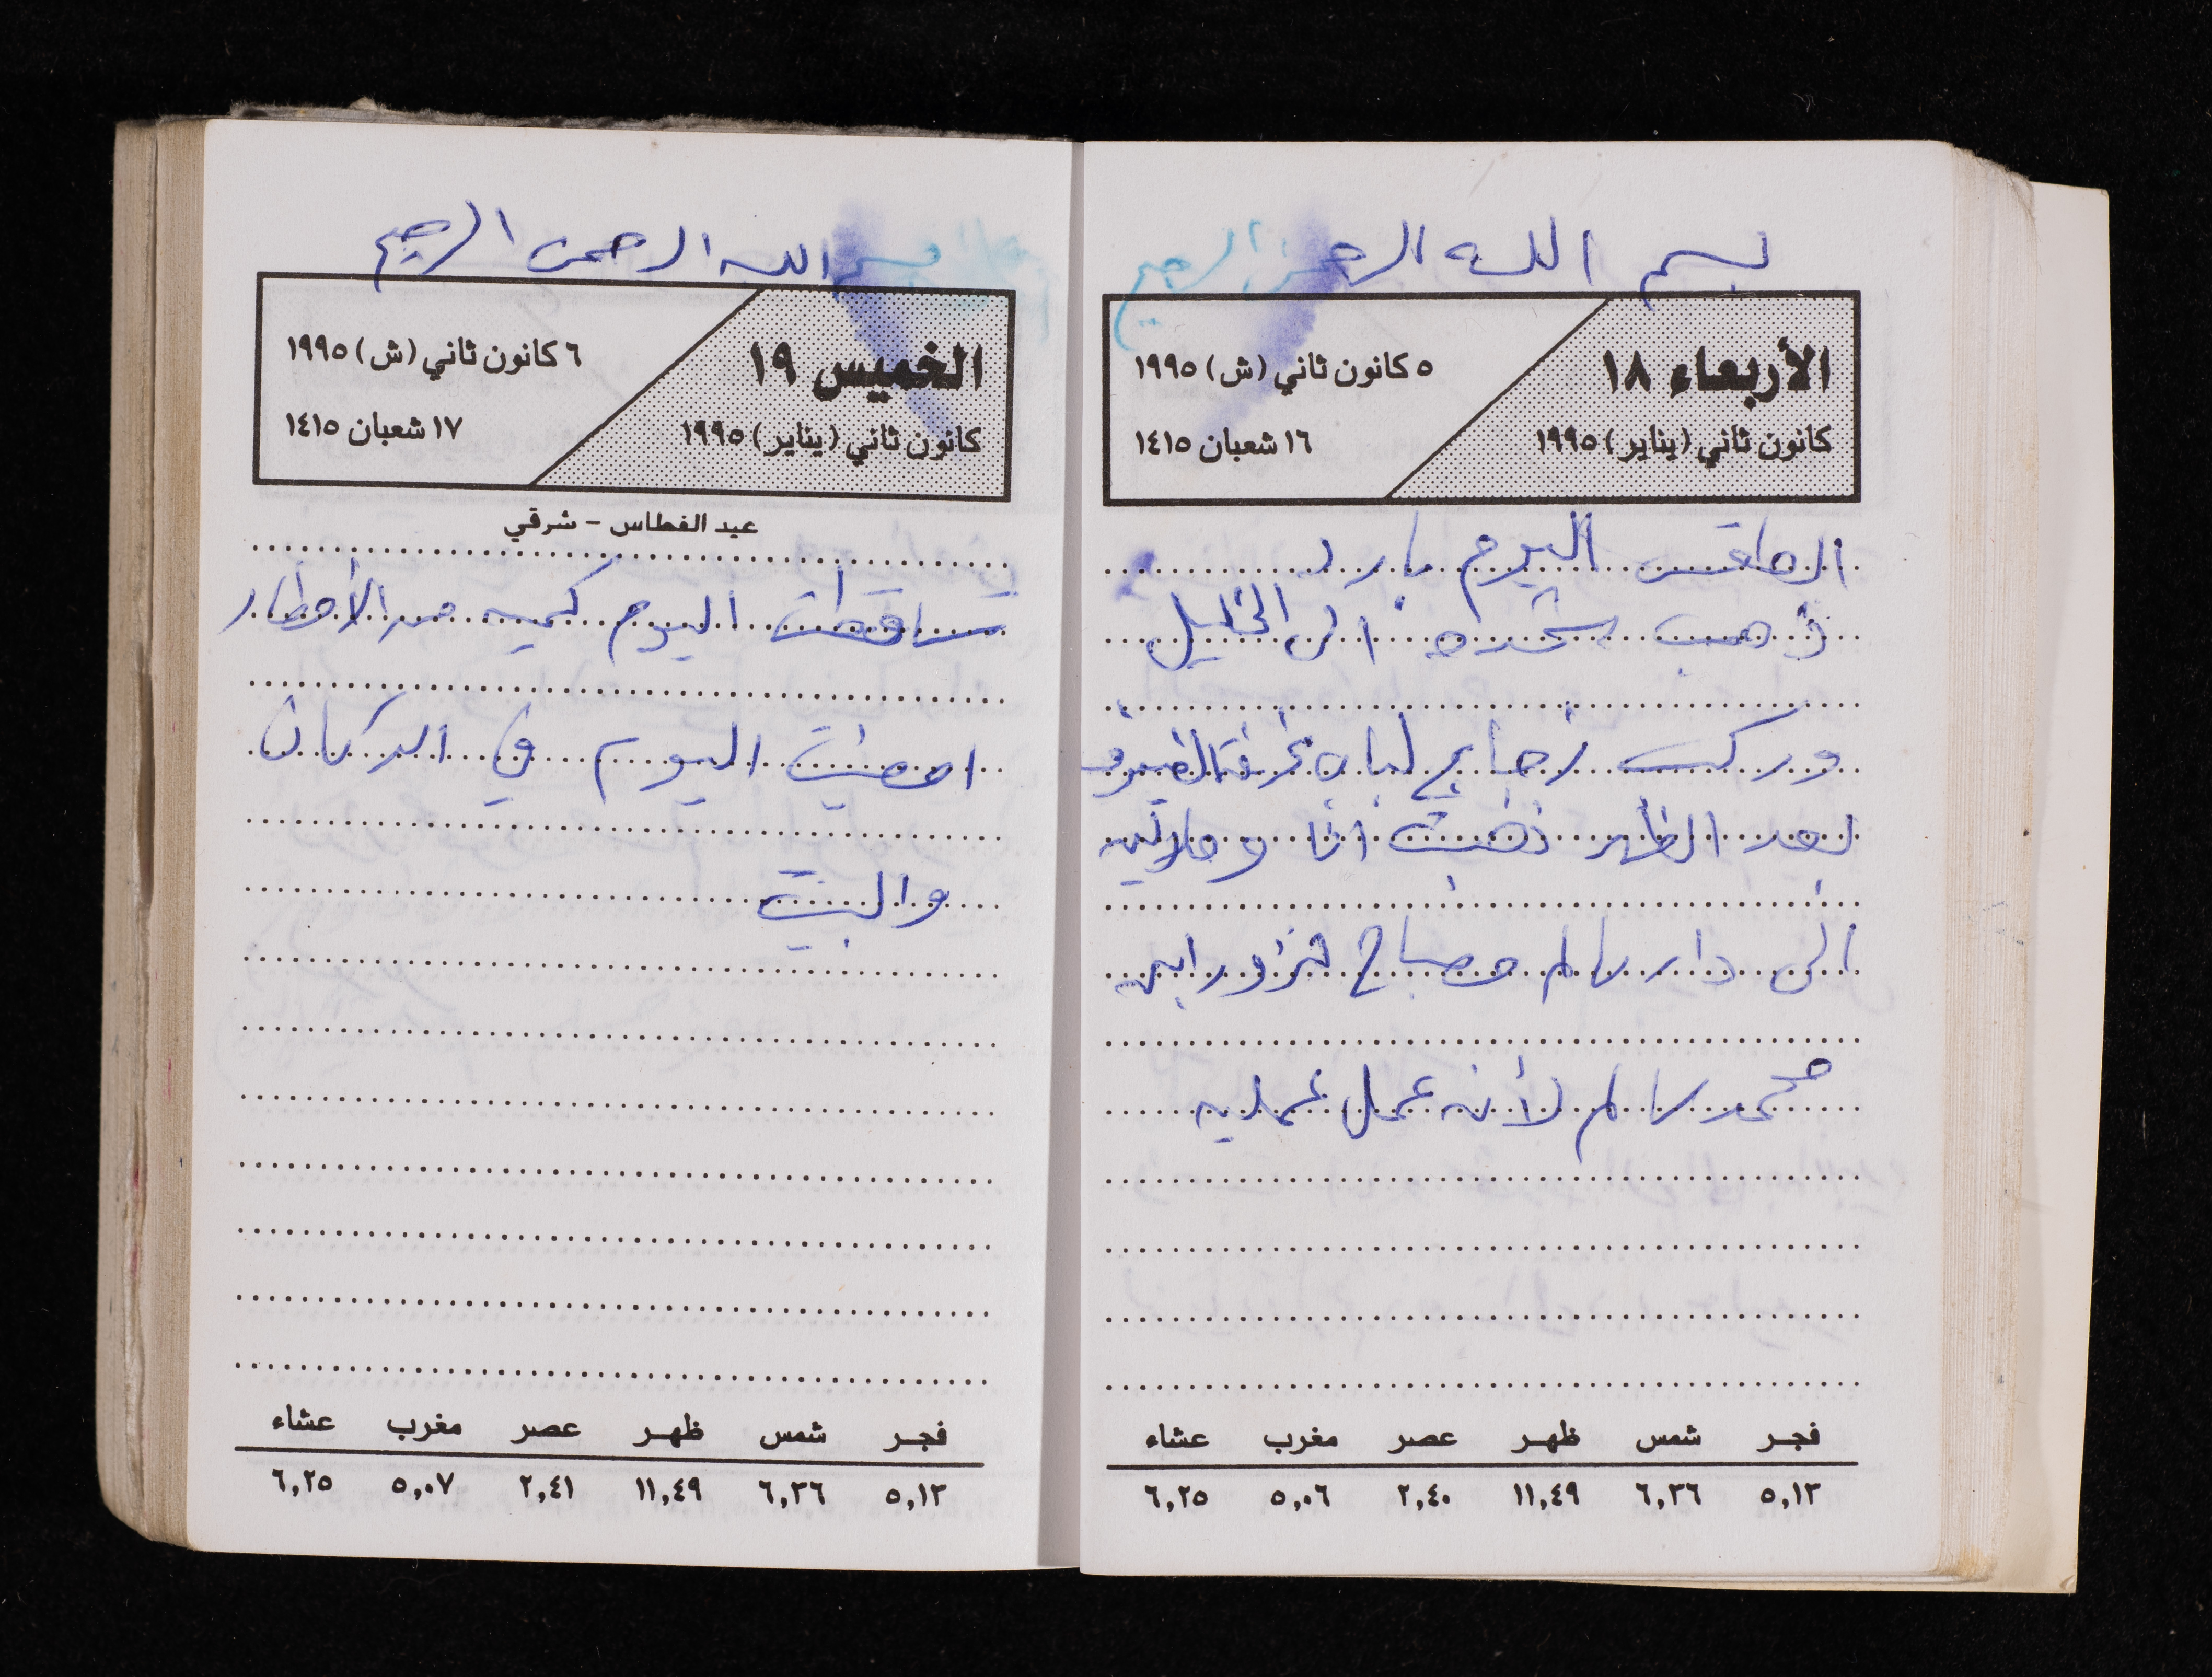 بسم الله الرحمن الرحيم
الأربعاء ١٨
كانون ثاني (يناير) ١٩٩٥
٥ كانون ثاني (ش) ١٩٩٥
١٦ شعبان ١٤١٥
الطقس اليوم بارد
ذهب شحده الى الخليل
وركب زجاج لباب غرفة الضيوف
بعد الظهر ذهبت انا
الى دار سالم مصباح لنزور ابنه
محمد سالم لأنه عمل عمليه
فجر شمس ظهر عصر مغرب عشاء
٥,١٢ ٦,٣٦ ١١,٤٩ ٢,٤٠ ٥,٠٦ ٦,٢٥
بسم الله الرحمن الرحيم
الخميس ١٩
كانون ثاني (يناير) ١٩٩٥
٦ كانون ثاني (ش) ١٩٩٥
١٧ شعبان ١٤١٥
عيد الغطاس - شرقي
تساقطت اليوم كميه من الأمطار
امضيت اليوم في الدكان
والبيت
فجر شمس ظهر عصر مغرب عشاء
٥,١٢ ٦,٣٦ ١١,٤٩ ٢,٤١ ٥,٠٧ ٦,٢٥